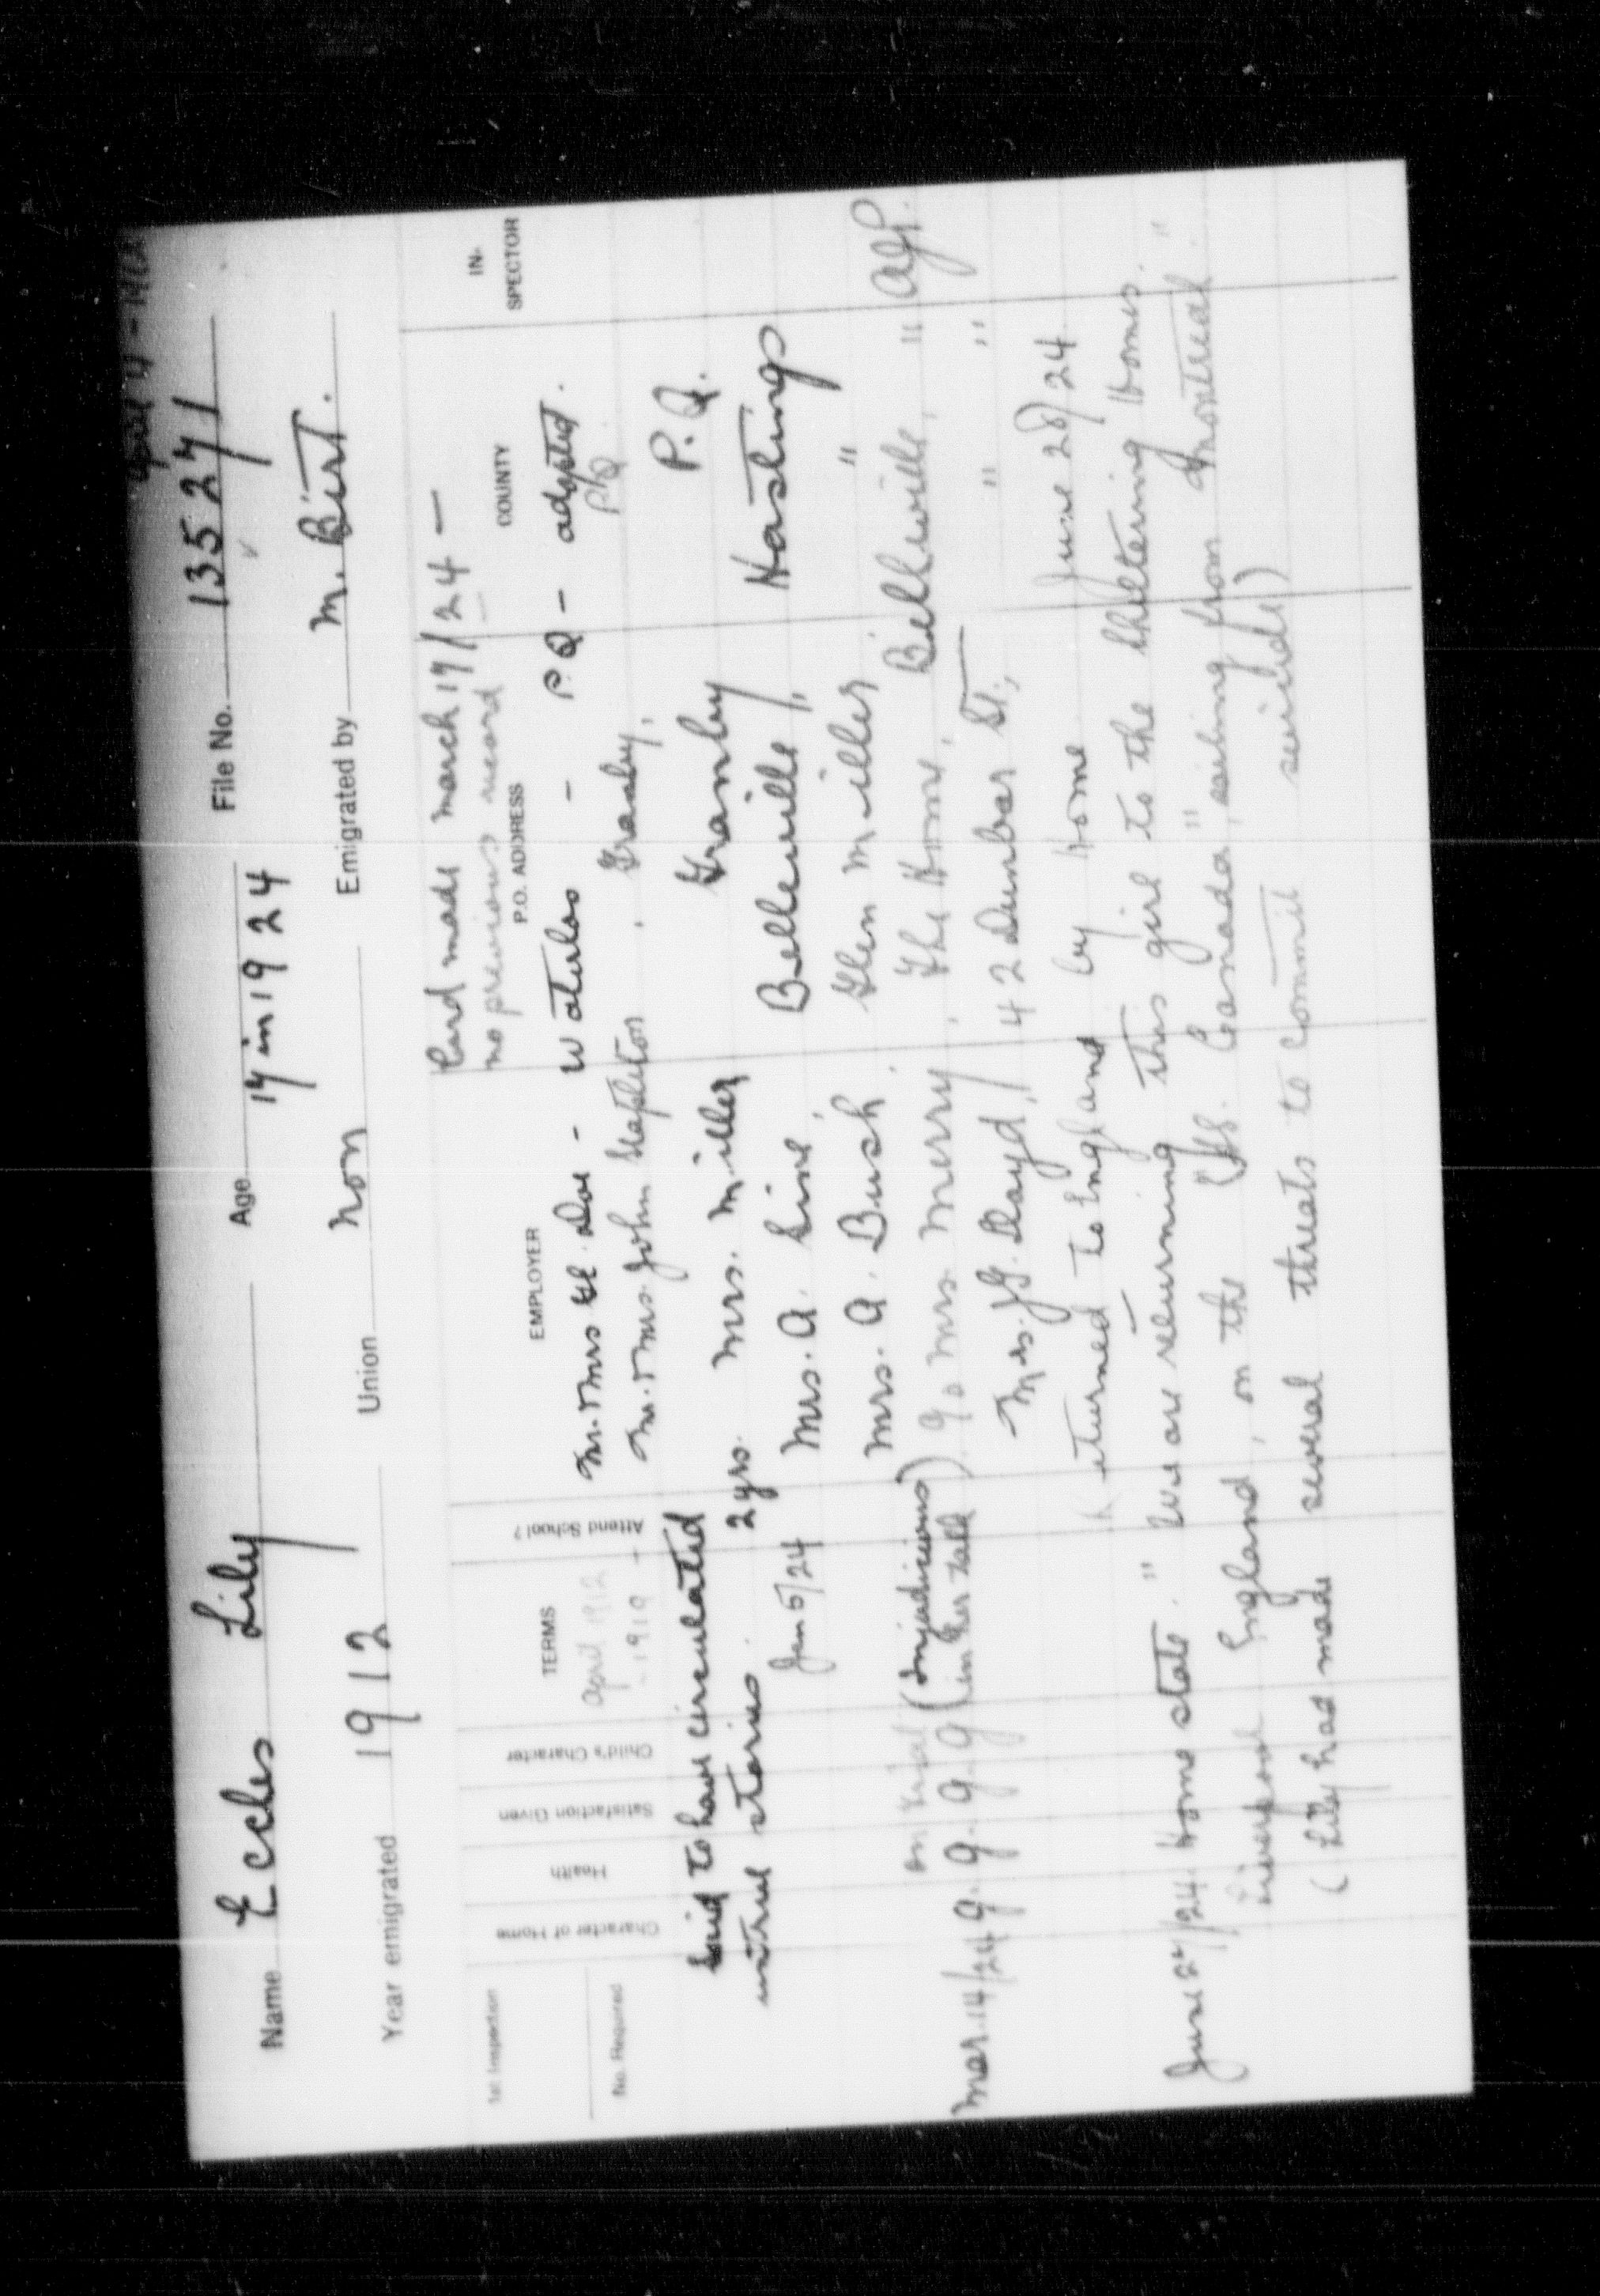 Name Eccles Lily Age 17 in 1924 File No. 135271
Year emigrated 1912 Union non Emigrated by M. Birt.
Card made March 17/24 —
no previous record
1st Inspection
No. Required
Character of Home
Health
Satisfaction Given
Child's Character
TERMS
Attend School?
EMPLOYER
P.O. ADDRESS
COUNTY
IN-
SPECTOR
April 1912 Mr. & Mrs Doe - Waterloo - P.Q - adopted.
- 1919 - Mr. & Mrs. John Stapleton, Granby, P.Q.
said to have circulated
untrue stories. 2 yrs. Mrs. Miller Granby P.Q.
Jan 5/24 Mrs. A. Sine, Belleville, Hastings
Mrs. A. Bush, Glen Miller "
on trial (Injudicious) c/o Mrs. Merry, The Home, Belleville, " AGP.
Mar. 14/24 g. g. g. g (in her talk) Mrs. J.G. Lloyd, 42 Dunbar St., " "
Returned to England by Home June 28/24
June 27/24. Home state. "We are returning this girl to the Sheltering Homes "
Liverpool England, on the SS. "Canada", sailing from Montreal."
(Lily has made several threats to commit suicide)